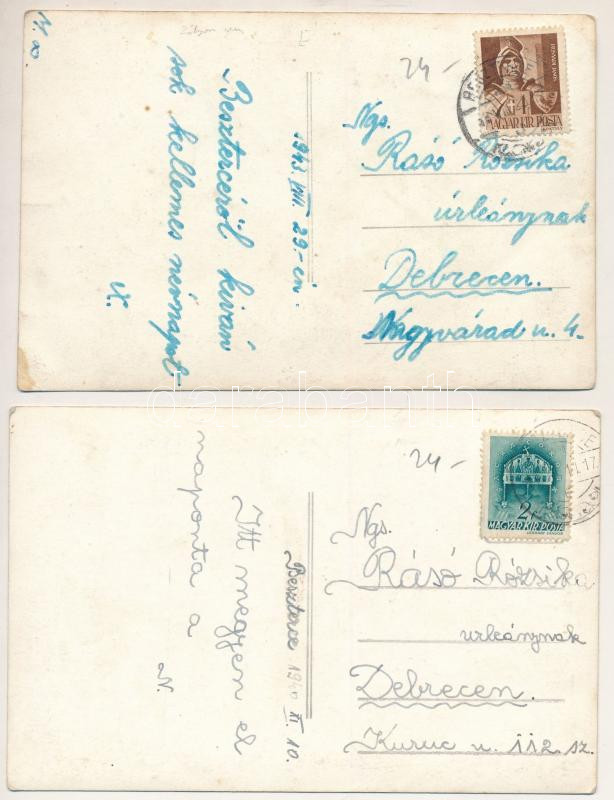 24-
HUNYADI JÁNOS
4
MAGYAR KIR. POSTA
Ngs.
Rásó Rózsika
úrleánynak
Debrecen.
Nagyvárad u. 4.
1943. VIII. 29-én.
Beszterceről kiván
sok kellemes névnapot:
X.
darabanth
24-
2
MAGYAR KIR. POSTA
Ngs.
Rásó Rózsika
urleánynak
Debrecen.
Kuruc u. 112. sz.
Beszterce 1940 XI. 10.
Itt megyen el
naponta a
N.